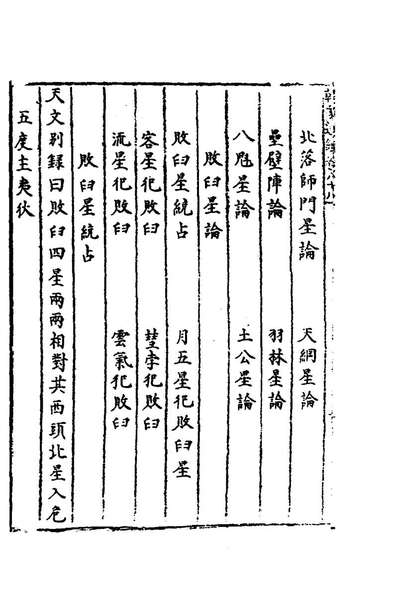 北落師門星論　天綱星論
壘壁陣論　羽林星論
八魁星論　土公星論
敗臼星論
敗臼星統占　月五星犯敗臼星
客星犯敗臼　彗孛犯敗臼
流星犯敗臼　雲氣犯敗臼
敗臼星統占
天文別錄曰敗臼四星兩兩相對其西頭北星入危
五度主夷狄